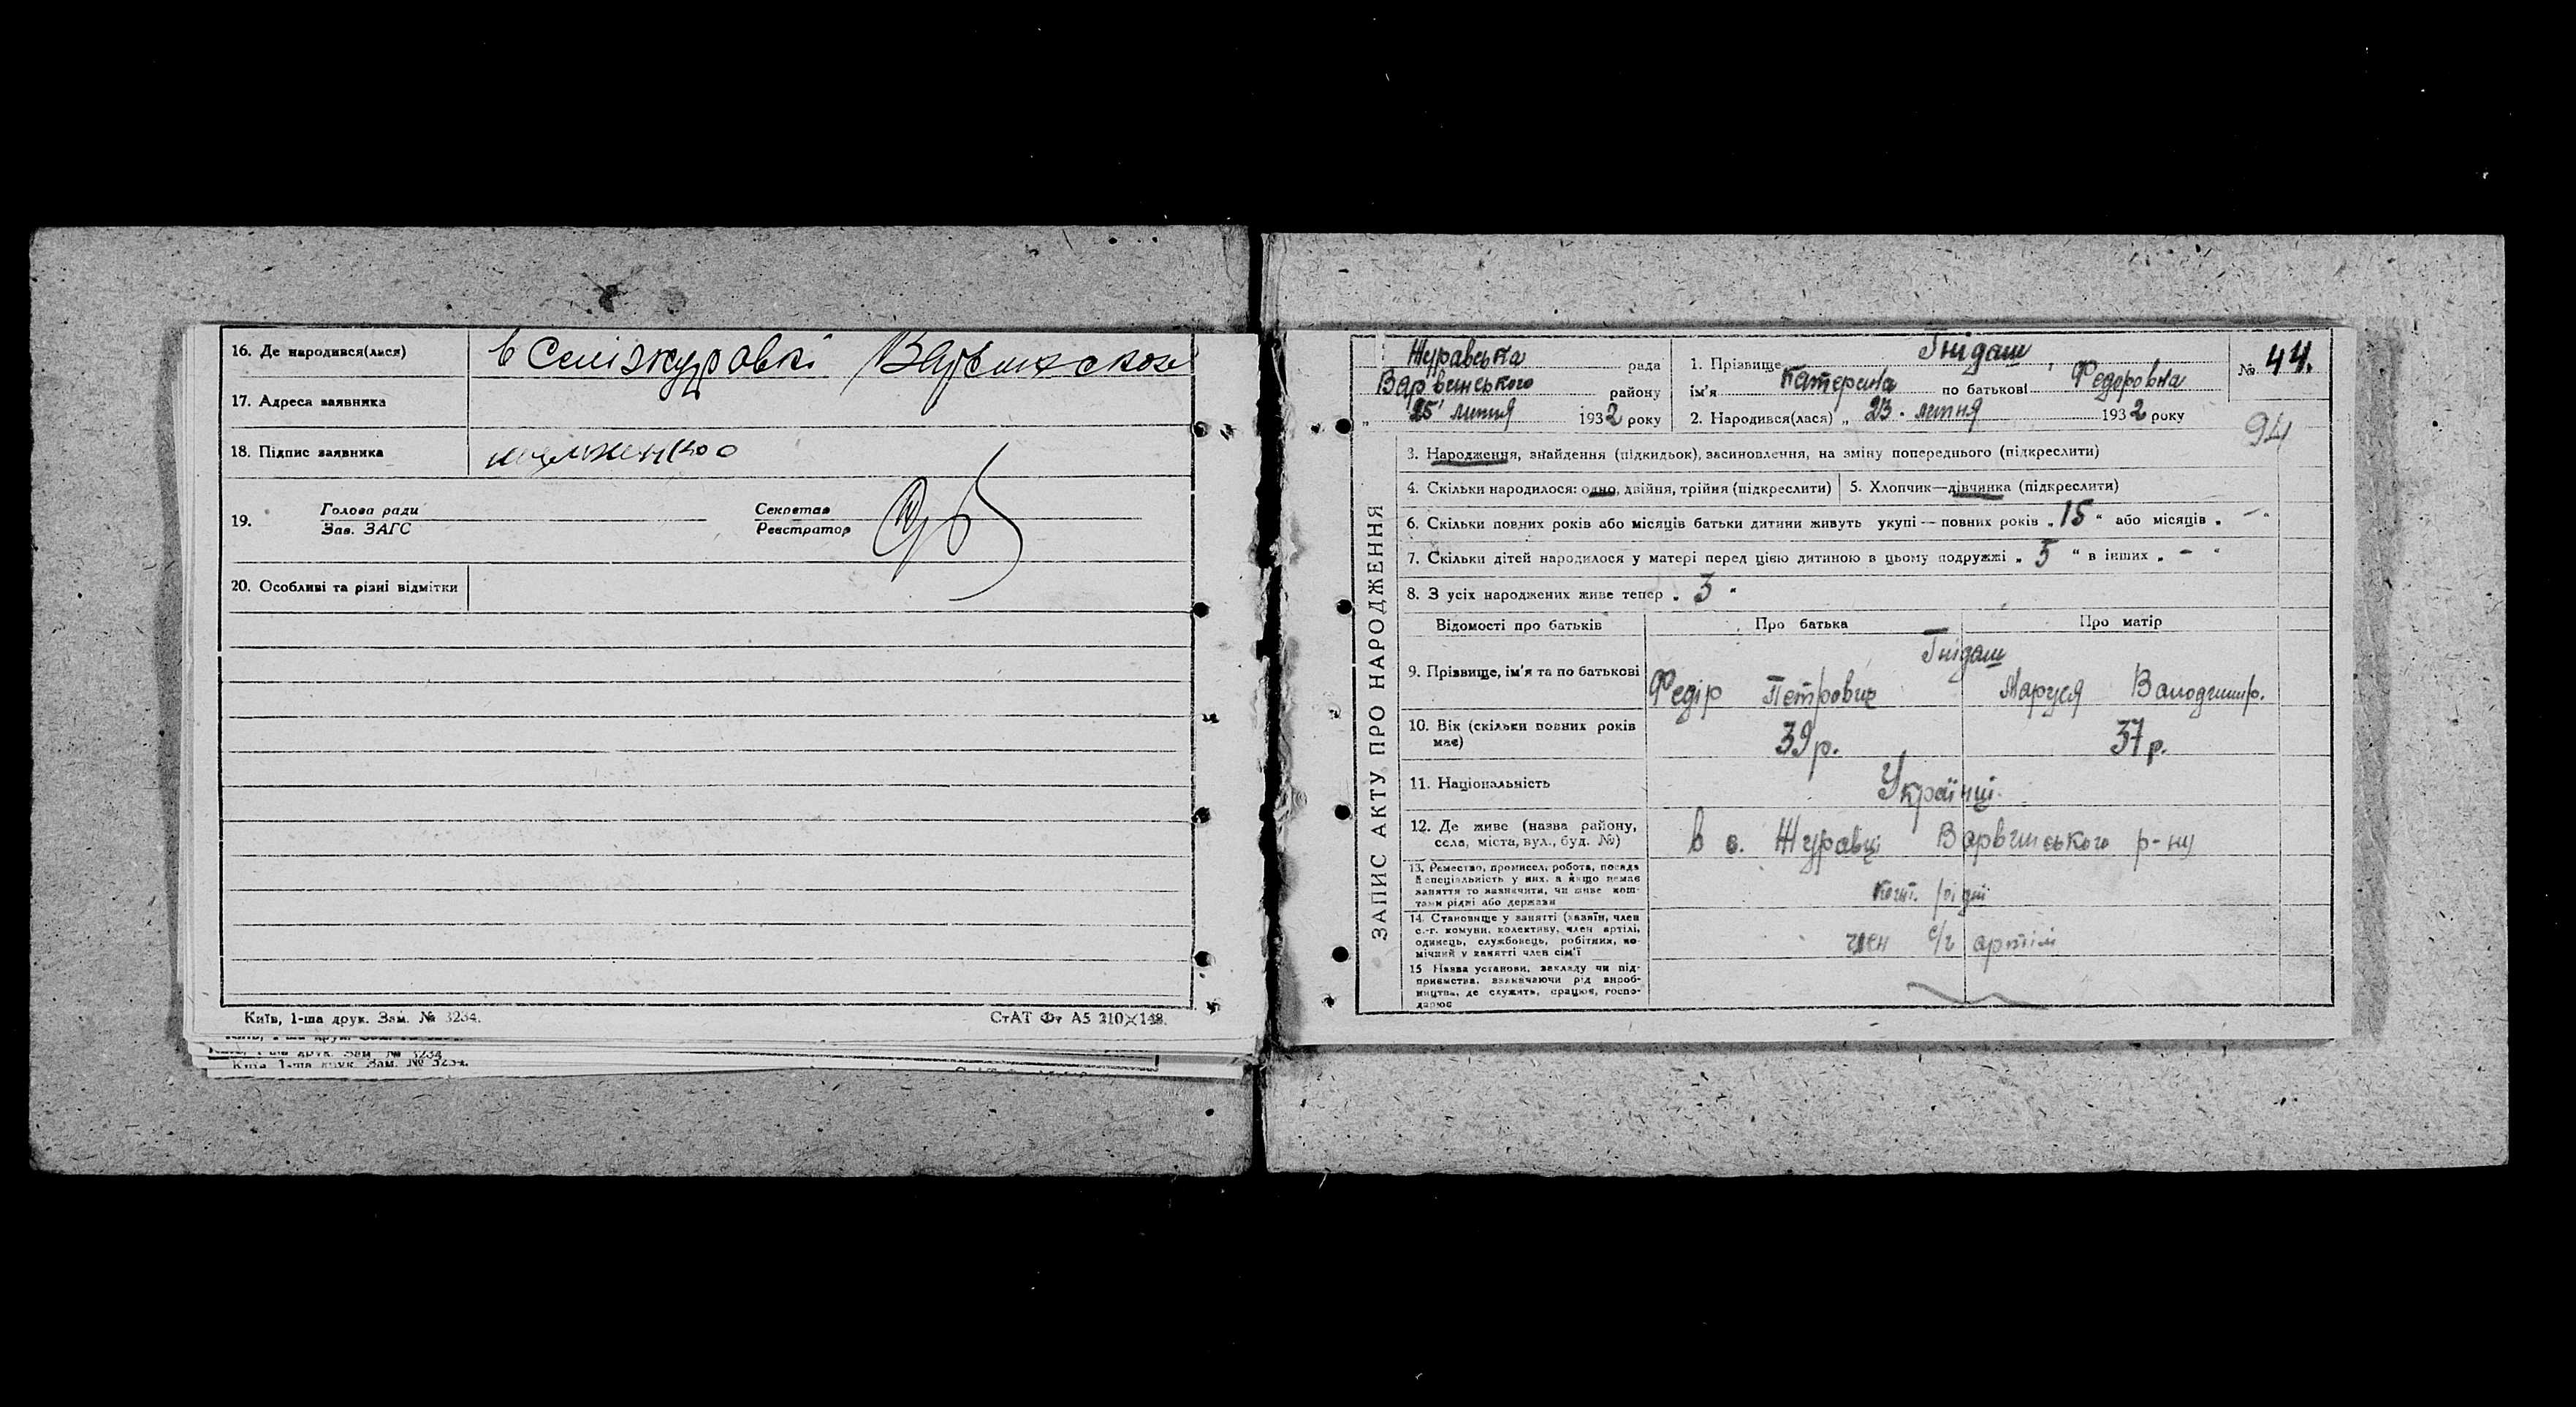 16. Де народився(лася)
в Селі
17. Адреса заявника
18. Підпис заявника
19.
Голова ради
Зав. ЗАГС
Секретар
Реєстратор
20. Особливі та різні відмітки
Київ, 1-ша друк. Зам. № 3234.
СтАТ Фт А5 210×148.
Київ, 1-ша друк. Зам. № 3234.
ЗАПИС АКТУ ПРО НАРОДЖЕННЯ
Журавська рада
Варвинського району
„ 25 липня 1932 року
1. Прізвище Гнідаш
ім'я Катерина по батькові Федоровна
2. Народився(лася) „ 23. липня 1932 року
№ 44.
94
3. Народження, знайдення (підкидьок), засиновлення, на зміну попереднього (підкреслити)
4. Скільки народилося: одно, двійня, трійня (підкреслити)
5. Хлопчик—дівчинка (підкреслити)
6. Скільки повних років або місяців батьки дитини живуть укупі — повних років „ 15 " або місяців „ — "
7. Скільки дітей народилося у матері перед цією дитиною в цьому подружжі „ 5 " в інших „ - "
8. З усіх народжених живе тепер „ 3 "
Відомості про батьків
Про батька
Про матір
9. Прізвище, ім'я та по батькові
Гнідаш
Федір Петрович
Маруся Володимир.
10. Вік (скільки повних років має)
39 р.
37 р.
11. Національність
Українці
12. Де живе (назва району,
села, міста, вул., буд. №)
в с. Журавці Варвинського р-ну
13. Ремество, промисел, робота, посада
й спеціальність у них, а якщо немає
заняття то зазначити, чи живе кош-
тами рідні або держави
14. Становище у занятті (хазяїн, член
с.-г. комуни, колективу, член артілі,
одинець, службовець, робітник, по-
мічний у занятті член сім'ї
член с/г артілі
15 Назва установи, закладу чи під-
приємства, зазначаючи рід вироб-
ництва, де служить, працює, госпо-
дарює